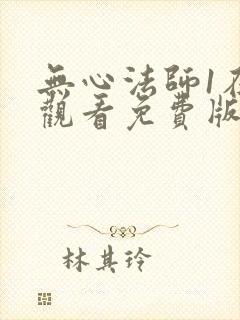 無心法師1在
觀看免費版
林其玲